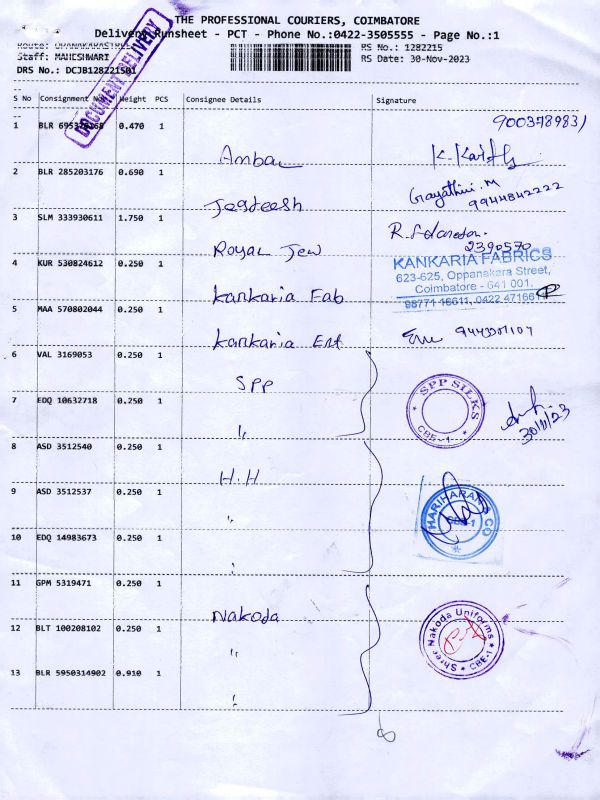 THE PROFESSIONAL COURIERS, COIMBATORE
Delivery Runsheet - PCT - Phone No.:0422-3505555 - Page No.:1
Route: OPANAKARASTREET
RS No.: 1282215
Staff: MAHESHWARI
RS Date: 30-Nov-2023
DRS No.: DCJB128221501
DOCUMENT DELIVERY
S No Consignment No Weight PCS Consignee Details Signature
1 BLR 0.470 1 Ambal
2 BLR 285203176 0.690 1 Jegteesh Gayathiri.M
9944842222
3 SLM 333930611 1.750 1 Royal Jew R.
2390570
4 KUR 530824612 0.250 1 Kankaria Fab
KANKARIA FABRICS
623-625, Oppanakara Street,
Coimbatore - 641 001.
98771 16611, 0422 471661
5 MAA 570802044 0.250 1 Kankaria Ent
6 VAL 3169053 0.250 1 SPP
SPP SILKS
CBE-1
7 EDQ 10632718 0.250 1 "
30/11/23
8 ASD 3512540 0.250 1 H.H
9 ASD 3512537 0.250 1 "
HARIHARAN & CO
CBE-1
10 EDQ 14983673 0.250 1 "
11 GPM 5319471 0.250 1 Nakoda
12 BLT 100208102 0.250 1 "
Shree Nakoda Uniforms
CBE-1
13 BLR 5950314902 0.910 1 "